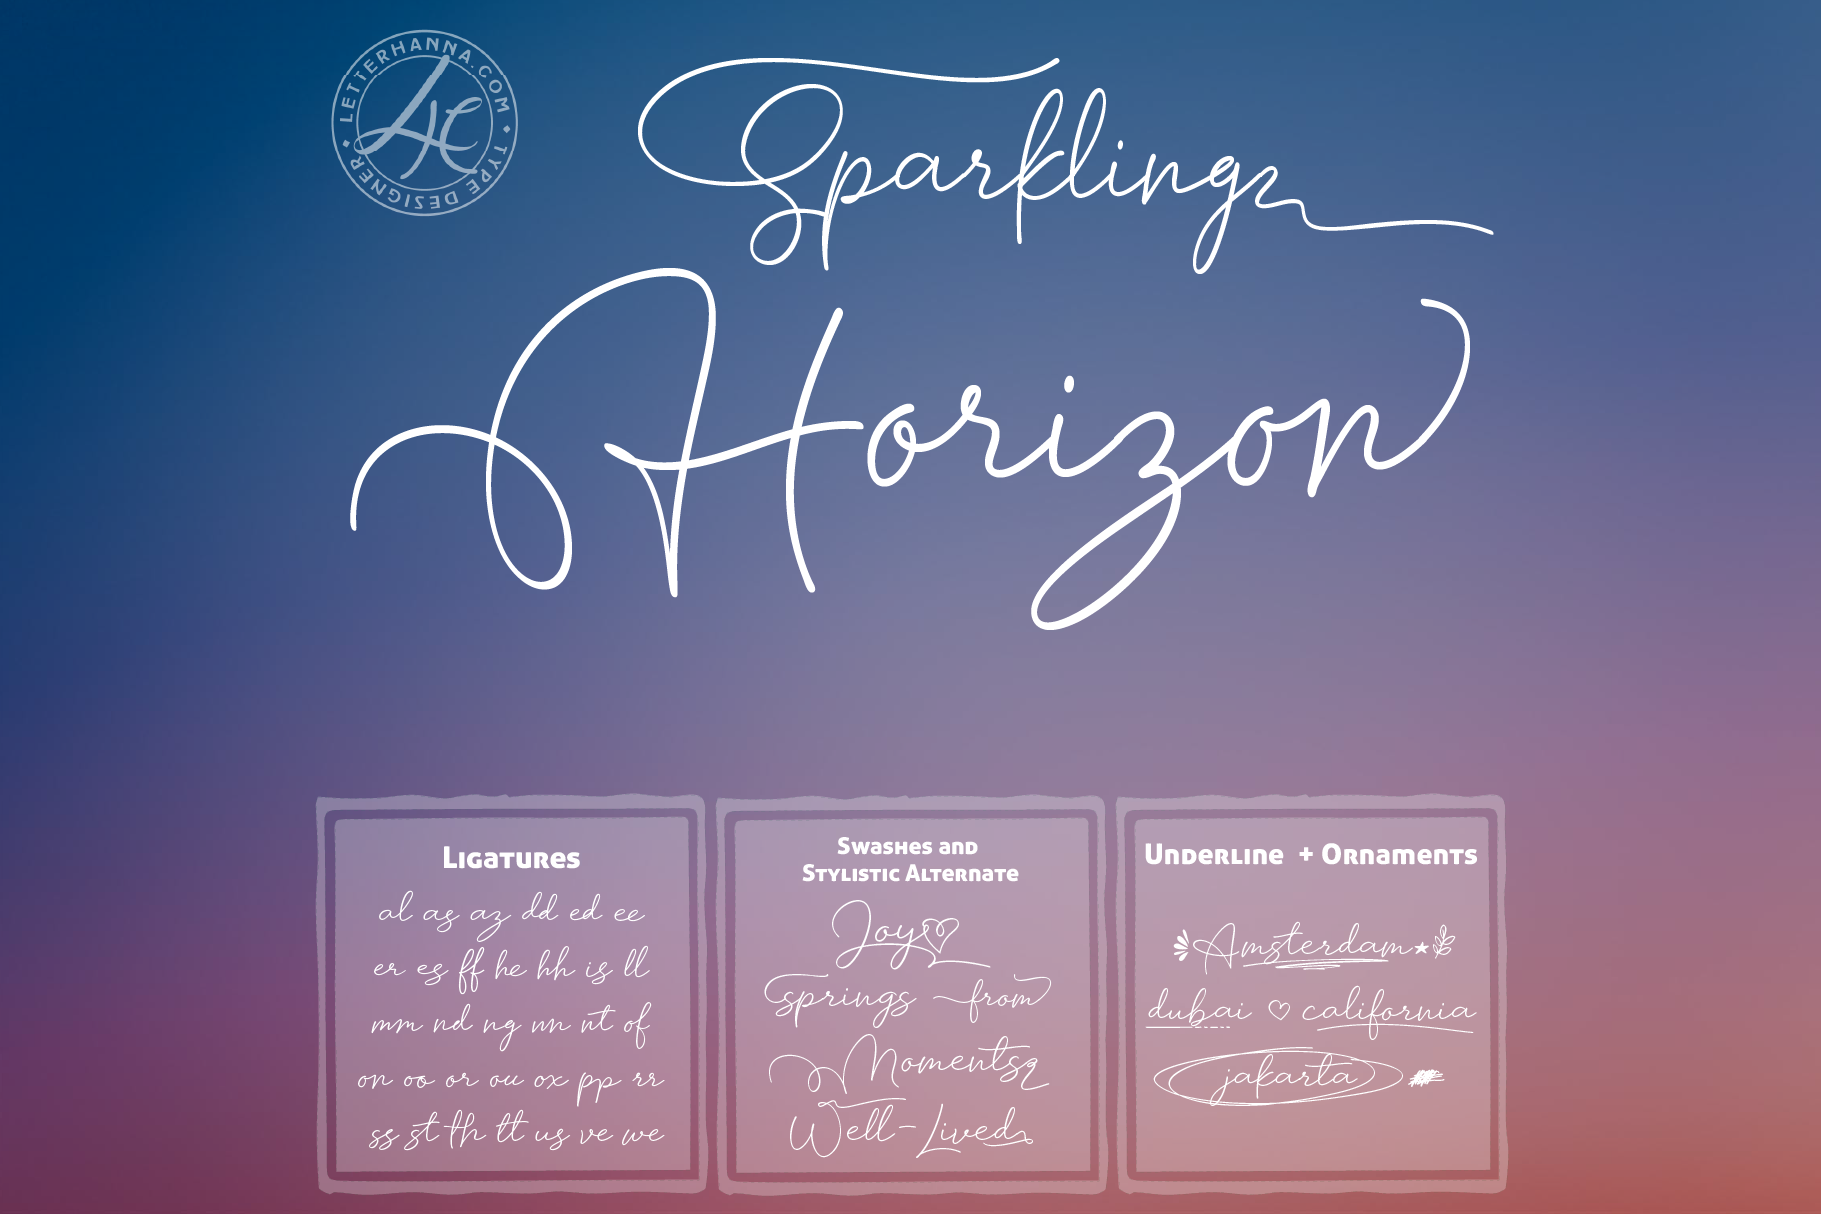 LETTERHANNA.COM • TYPE DESIGNER •
LH
Sparkling
Horizon
Ligatures
al as az dd ed ee
er es ff he hh is ll
mm nd ng nn nt of
on oo or ou ox pp rr
ss st th tt us ve we
Swashes and
Stylistic Alternate
Joy
springs from
Moments
Well-Lived
Underline + Ornaments
Amsterdam
dubai ♡ california
jakarta